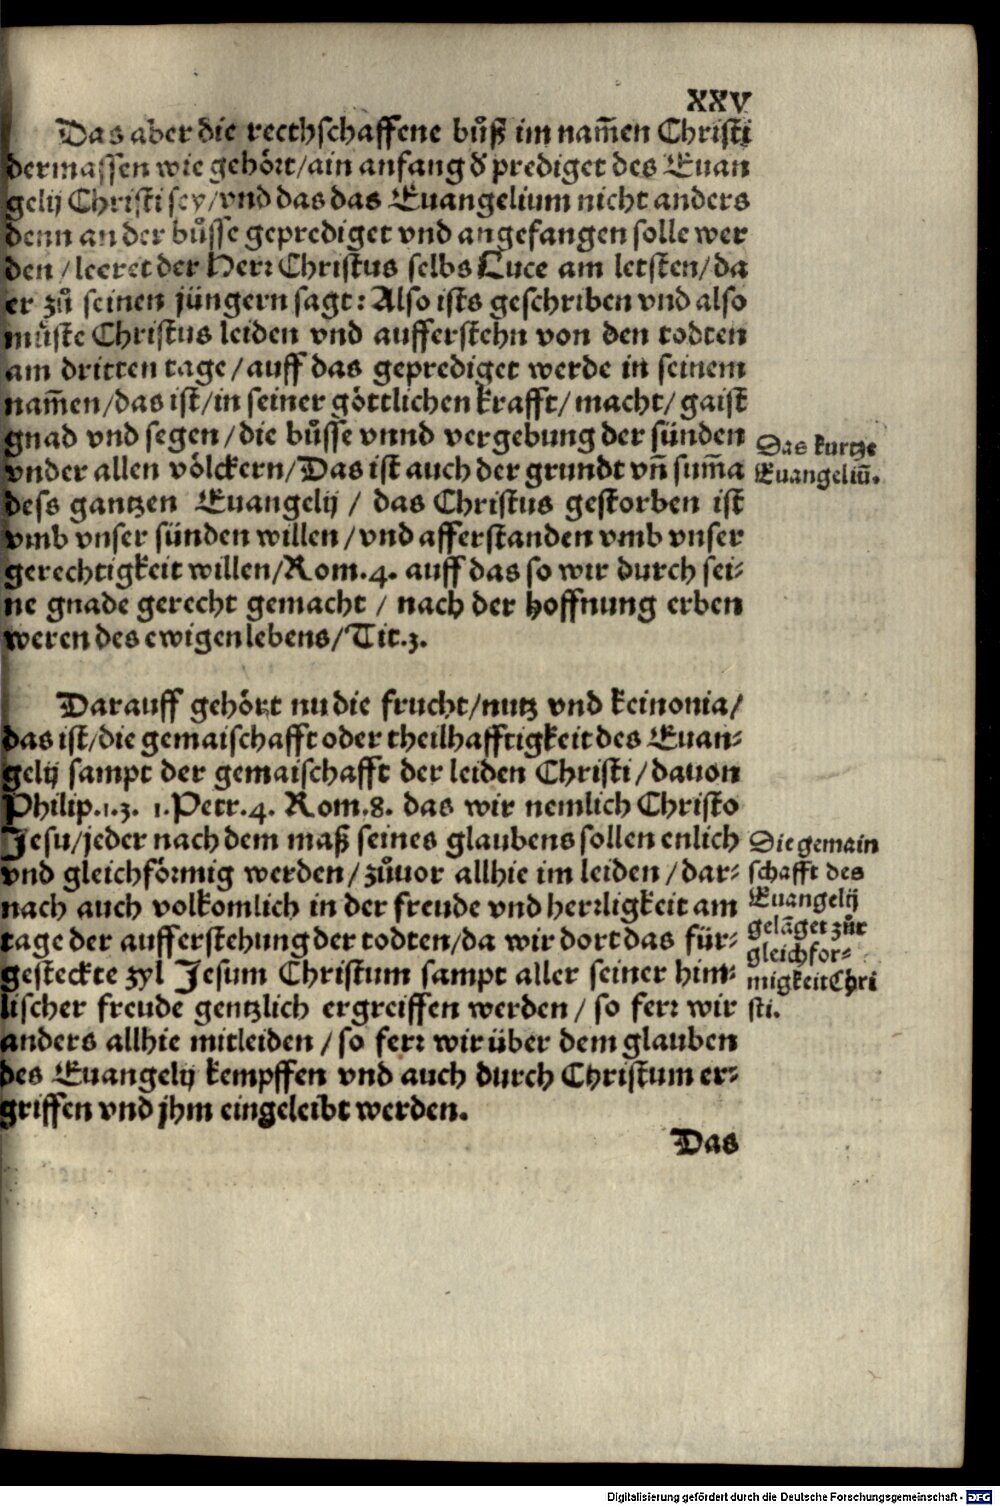 XXV
Das aber die recthschaffene bůß im nam̃en Christi
dermassen wie gehört/ain anfang d̕ prediget des Euan
gelij Christi sey/vnd das das Euangelium nicht anders
denn an der bůsse geprediget vnd angefangen solle wer
den/leeret der Herr Christus selbs Luce am letsten/da
er zů seinen jüngern sagt: Also ists geschriben vnd also
můste Christus leiden vnd aufferstehn von den todten
am dritten tage/auff das geprediget werde in seinem
nam̃en/das ist/in seiner göttlichen krafft/macht/gaist
gnad vnd segen/die bůsse vnnd vergebung der sünden
vnder allen völckern/Das ist auch der grundt vñ sum̃a
dess gantzen Euangelij / das Christus gestorben ist
vmb vnser sünden willen/vnd afferstanden vmb vnser
gerechtigkeit willen/Rom.4. auff das so wir durch sei-
ne gnade gerecht gemacht / nach der hoffnung erben
weren des ewigen lebens/Tit.3.
Das kurtze
Euangeliũ.
Darauff gehört nu die frucht/nutz vnd keinonia/
das ist/die gemaischafft oder theilhafftigkeit des Euan-
gelij sampt der gemaischafft der leiden Christi/dauon
Philip.1.3. 1.Petr.4. Rom.8. das wir nemlich Christo
Jesu/jeder nach dem maß seines glaubens sollen enlich
vnd gleichförmig werden/zůuor allhie im leiden/dar-
nach auch volkomlich in der freude vnd herrligkeit am
tage der aufferstehung der todten/da wir dort das für-
gesteckte zyl Jesum Christum sampt aller seiner him-
lischer freude gentzlich ergreiffen werden / so ferr wir
anders allhie mitleiden / so ferr wir über dem glauben
des Euangelij kempffen vnd auch durch Christum er-
griffen vnd jhm eingeleibt werden.
Die gemain
schafft des
Euangelij
gelãget zůr
gleichfor-
migkeit Chri
sti.
Das
Digitalisierung gefördert durch die Deutsche Forschungsgemeinschaft - DFG